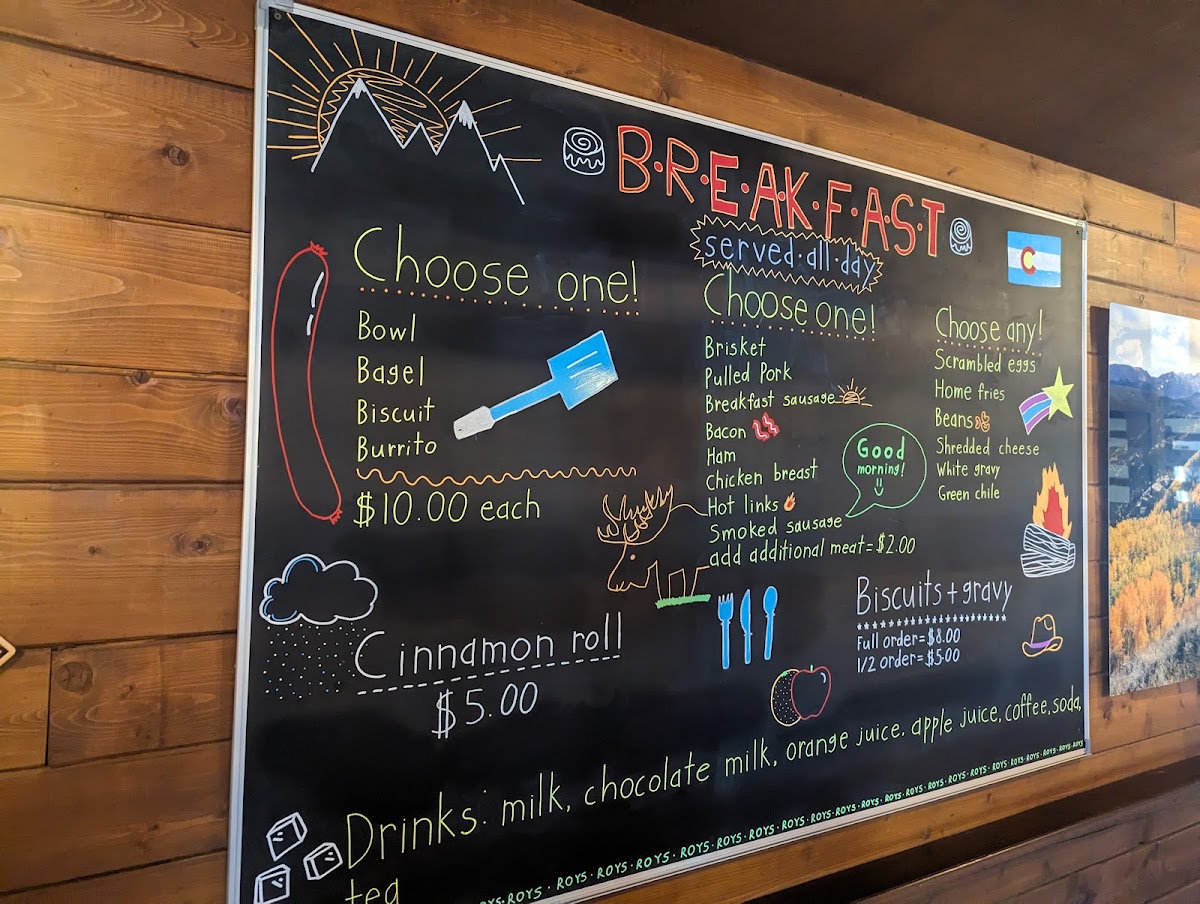 B·R·E·A·K·F·A·S·T
served·all·day
Choose one!
Bowl
Bagel
Biscuit
Burrito
$10.00 each
Choose one!
Brisket
Pulled Pork
Breakfast sausage
Bacon
Ham
Chicken breast
Hot links
Smoked sausage
add additional meat=$2.00
Good
morning!
Choose any!
Scrambled eggs
Home fries
Beans
Shredded cheese
White gravy
Green chile
C
Cinnamon roll
$5.00
Biscuits+gravy
Full order=$8.00
1/2 order=$5.00
Drinks: milk, chocolate milk, orange juice. apple juice, coffee, soda,
tea
ROYS·ROYS·ROYS·ROYS·ROYS·ROYS·ROYS·ROYS·ROYS·ROYS·ROYS·ROYS·ROYS·ROYS·ROYS·ROYS·ROYS·ROYS·ROYS·ROYS